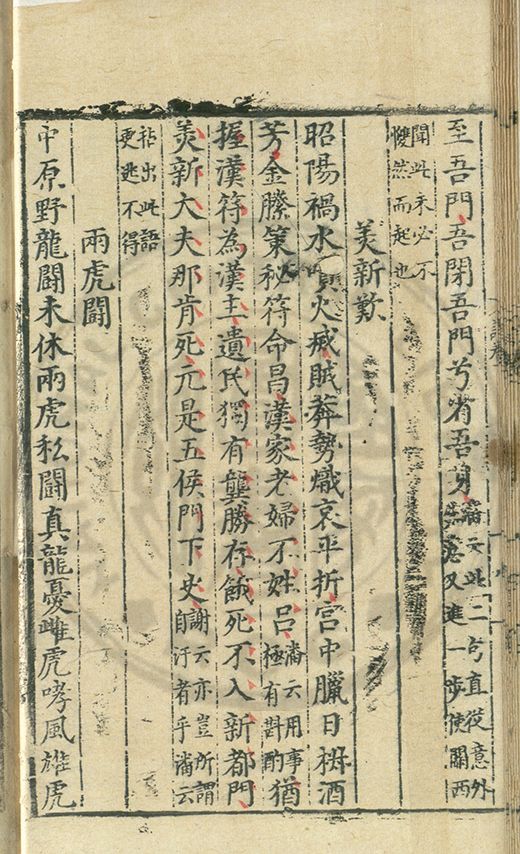 至吾門吾閉吾門兮省吾身潘云此二句直從意外
又進一步使關西
聞此未必不
然而起也
美新歎
昭陽禍水火滅賊莽勢熾哀平折宫中臘日椒酒
芳金縢策秘符命昌漢家老婦不姓呂潘云用事極有斟酌猶
握漢符為漢遺民獨有龔勝存餓死不入新都門
美新大夫那肯死元是五侯門下史謝云亦豈所謂自汙者乎潘云
拈出此語
更逃不得
兩虎鬬
中原野龍鬬未休兩虎私鬬真龍憂雌虎哮風雄虎